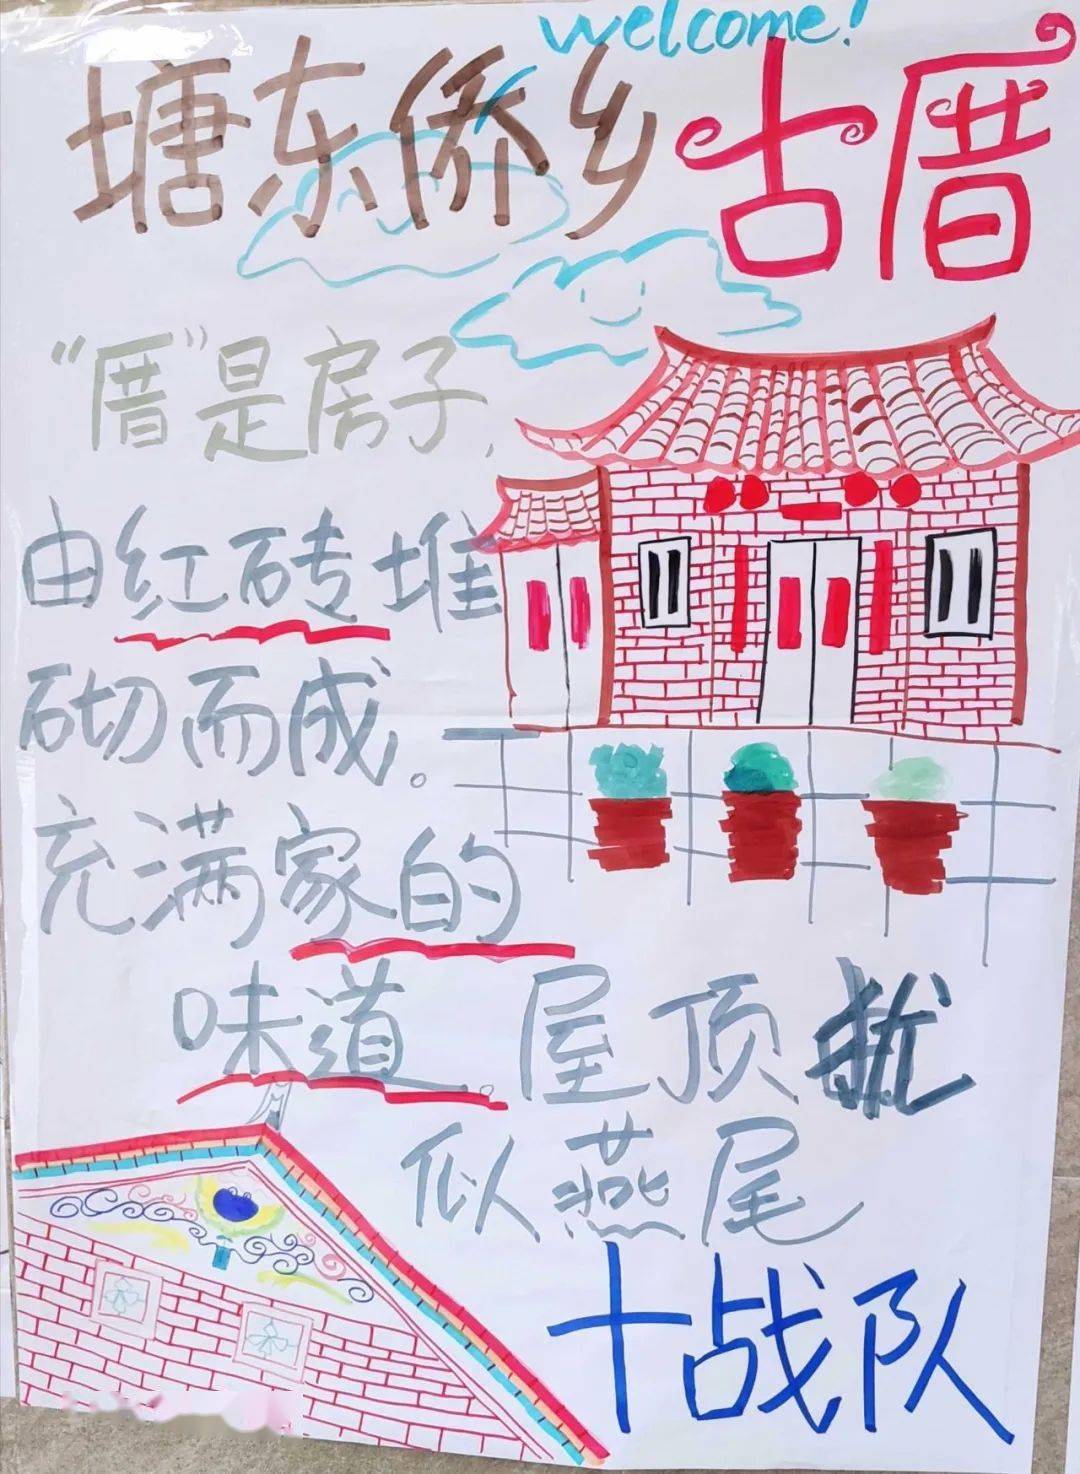 welcome!
塘东侨乡古厝
“厝”是房子,
由红砖堆
砌而成。
充满家的
味道。屋顶犹
似燕尾
十战队